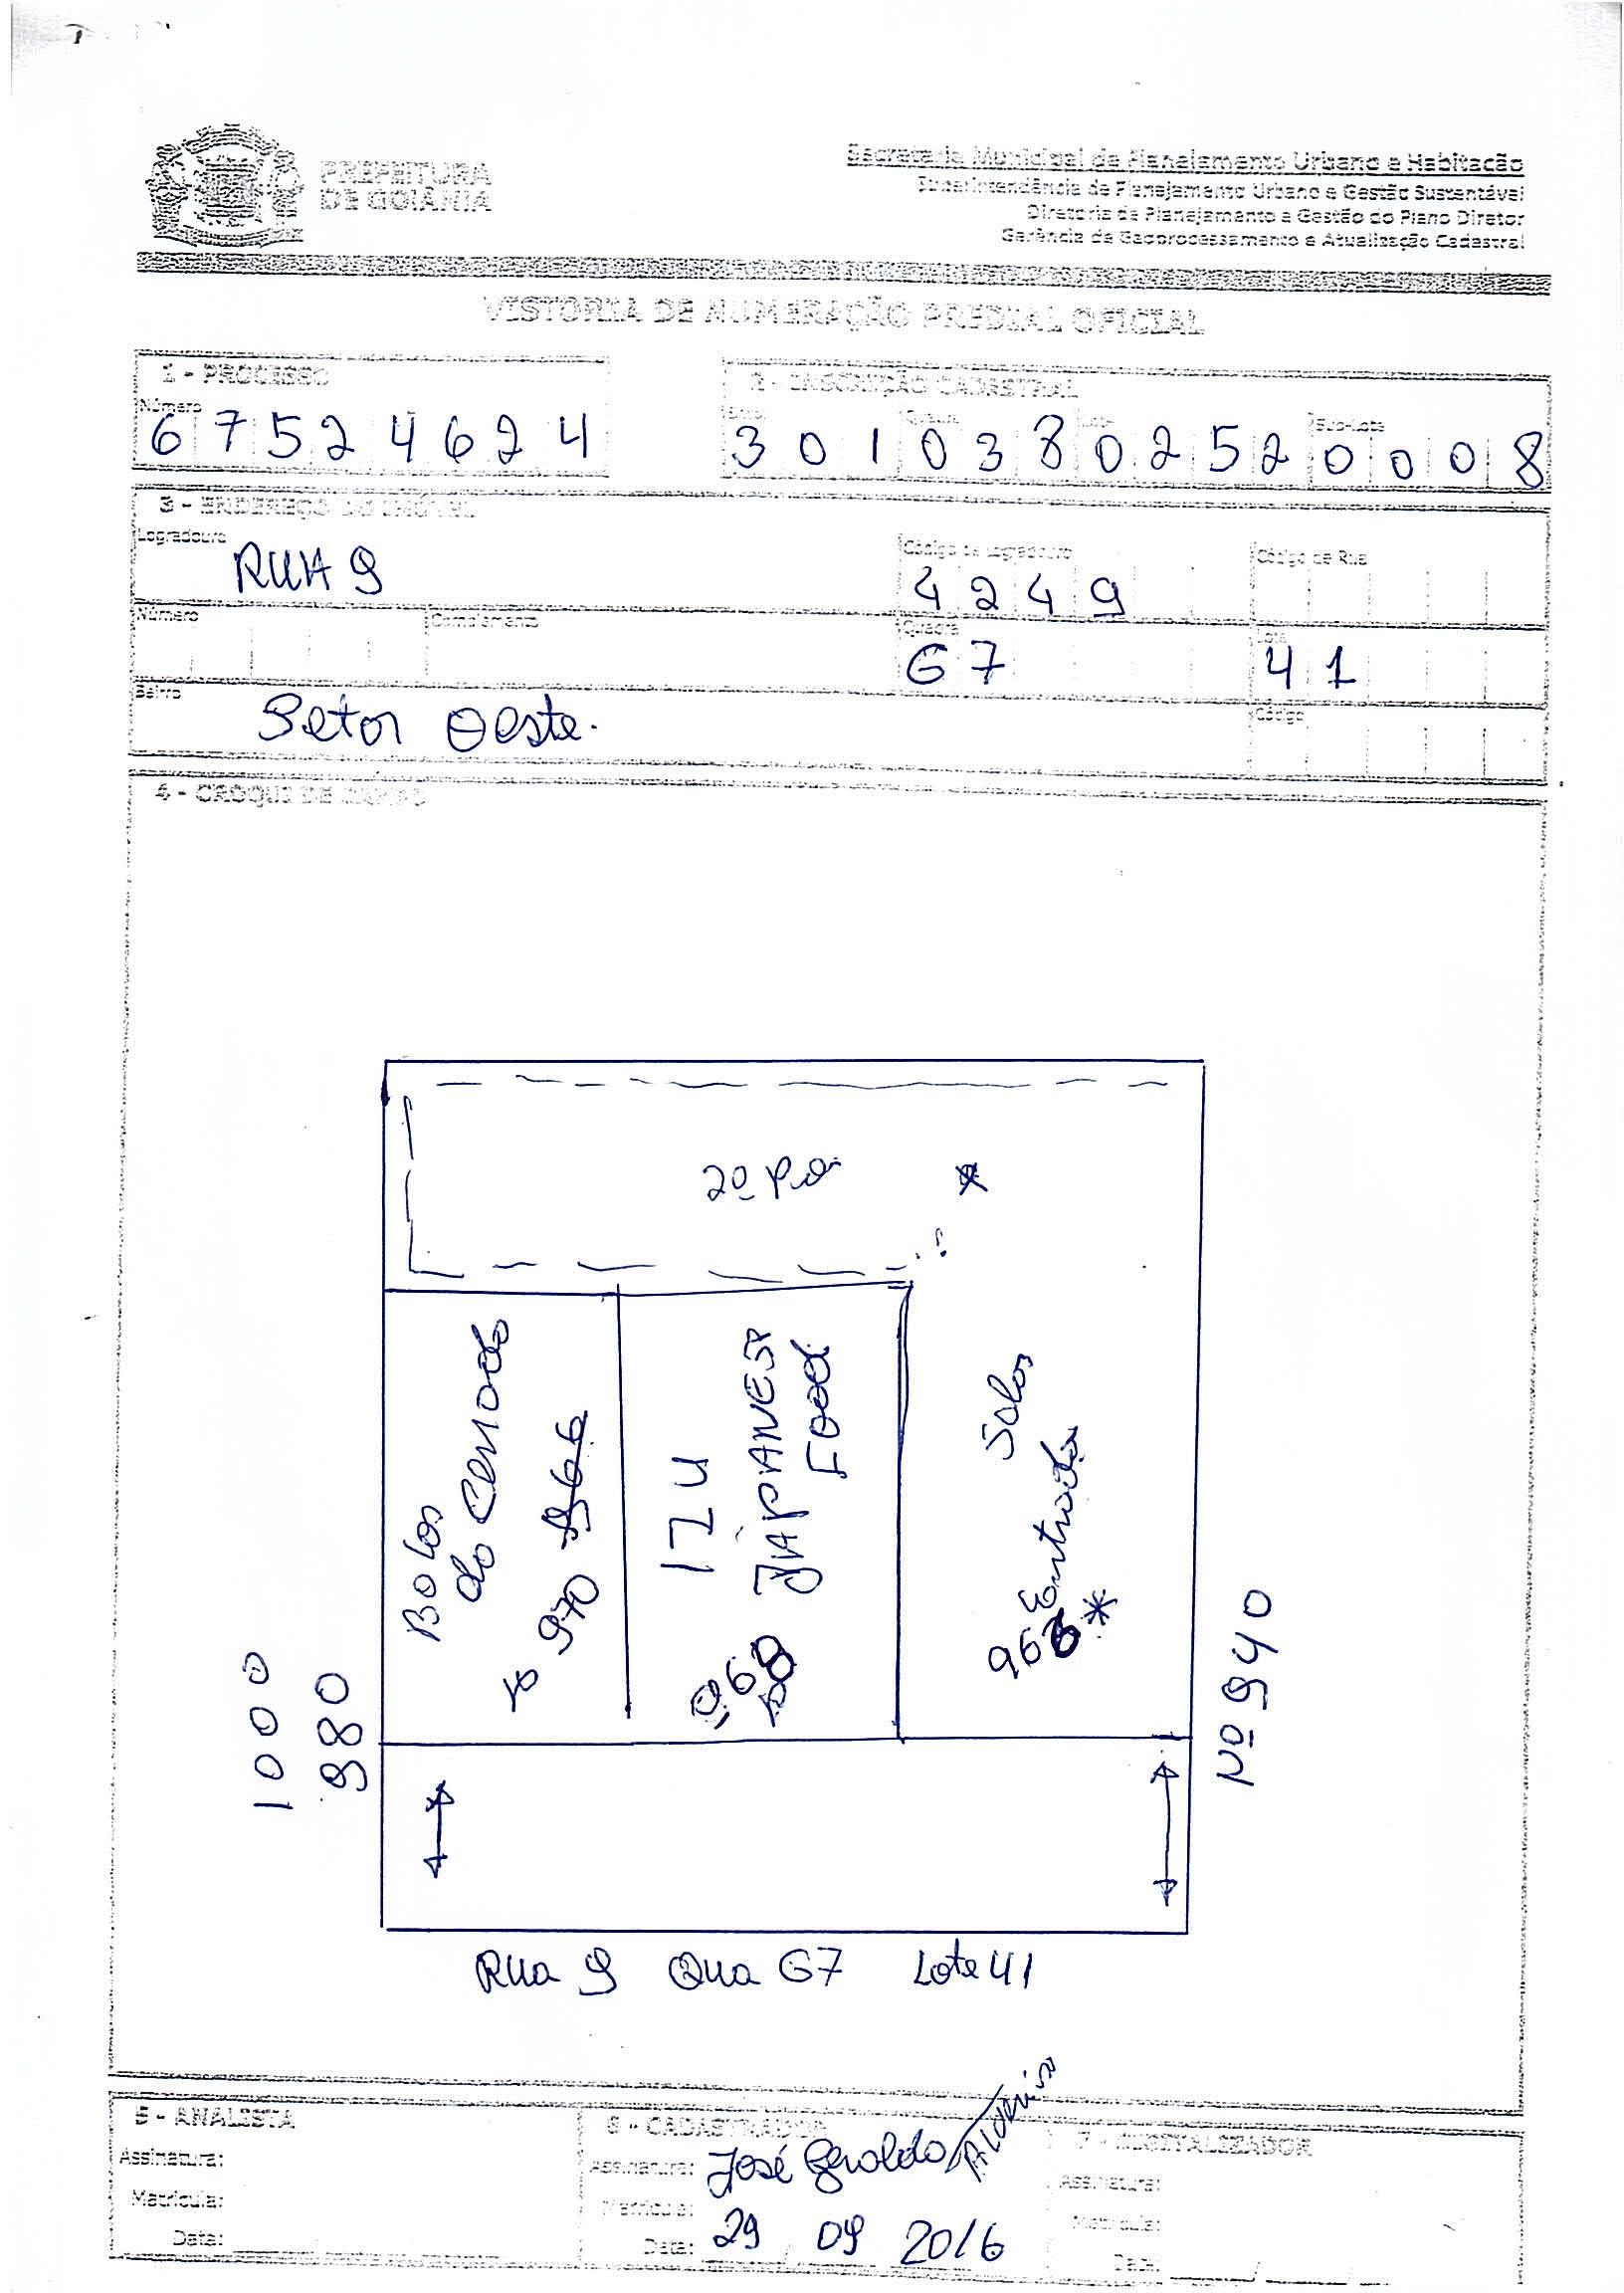 PREFEITURA
DE GOIÂNIA
Secretaria Municipal de Planejamento Urbano e Habitação
Superintendência de Planejamento Urbano e Gestão Sustentável
Diretoria de Planejamento e Gestão do Plano Diretor
Gerência de Geoprocessamento e Atualização Cadastral
VISTORIA DE NUMERAÇÃO PREDIAL OFICIAL
1 - PROCESSO
Número
6 7 5 2 4 6 2 4
2 - INSCRIÇÃO CADASTRAL
Quadra Sub-Lote
3 0 1 0 3 8 0 2 5 2 0 0 0 8
3 - ENDEREÇO DO IMÓVEL
Logradouro Código de Logradouro Código de Rua
RUA 9 4 2 4 9
Número Complemento Quadra Lote
G 7 4 1
Bairro Código
Setor Oeste.
4 - CROQUI DE CAMPO
2º
*
Bolos
do Cerrado
970
IZU
JAPANESE
Food
968
Salas
Entrada
966 *
1000
980
Nº 940
Rua 9 Qua G7 Lote 41
5 - ANALISTA
Assinatura:
Matrícula:
Data:
6 - CADASTRADOR
Assinatura: José Geraldo
Matrícula:
Data: 29 09 2016
7 - DIGITALIZADOR
Assinatura:
Matrícula:
Data: